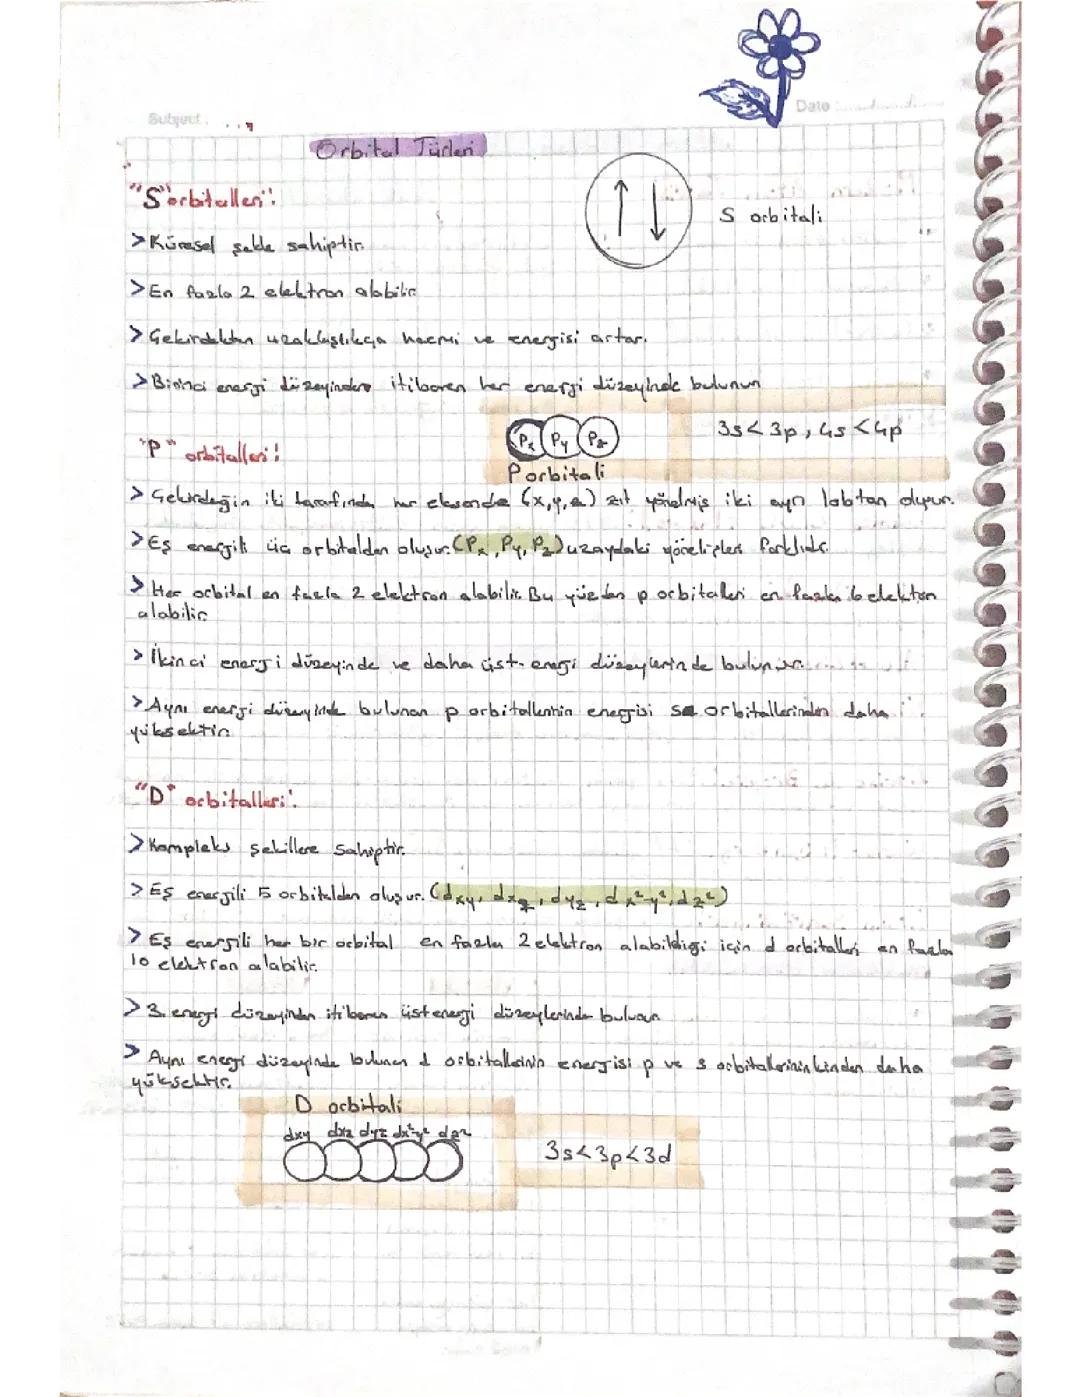 Subject:
Date
Orbital Türleri
"S" orbitalleri:
S orbitali
> Küresel şekle sahiptir.
> En fazla 2 elektron alabilir.
> Çekirdekten uzaklaştıkça hacmi ve energisi artar.
> Birinci energi düzeyinden itibaren her energi düzeyinde bulunur.
3s<3p, 4s<4p
Px Py Pz
P orbitali
"P" orbitalleri:
> Çekirdeğin iki tarafında her eksende (x,y,z) zıt yönelmiş iki ayrı lobtan oluşur.
> Eş energili üç orbitalden oluşur. (Px, Py, Pz) uzaydaki yönelişleri farklıdır.
> Her orbital en fazla 2 elektron alabilir. Bu yüzden p orbitalleri en fazla 6 elektron
alabilir.
> İkinci energi düzeyinde ve daha üst energi düzeylerinde bulunur.
> Aynı energi düzeyinde bulunan p orbitallerinin energisi s orbitallerinden daha
yüksektir.
"D" orbitalleri:
> Kompleks şekillere sahiptir.
> Eş energili 5 orbitalden oluşur. (dxy, dxz, dyz, dx²-y², dz²)
> Eş energili her bir orbital en fazla 2 elektron alabildiği için d orbitalleri en fazla
10 elektron alabilir.
> 3. energi düzeyinden itibaren üst energi düzeylerinde bulunur.
> Aynı energi düzeyinde bulunan d orbitallerinin energisi p ve s orbitallerininkinden daha
yüksektir.
D orbitali
dxy dxz dyz dx²-y² dz²
3s<3p<3d